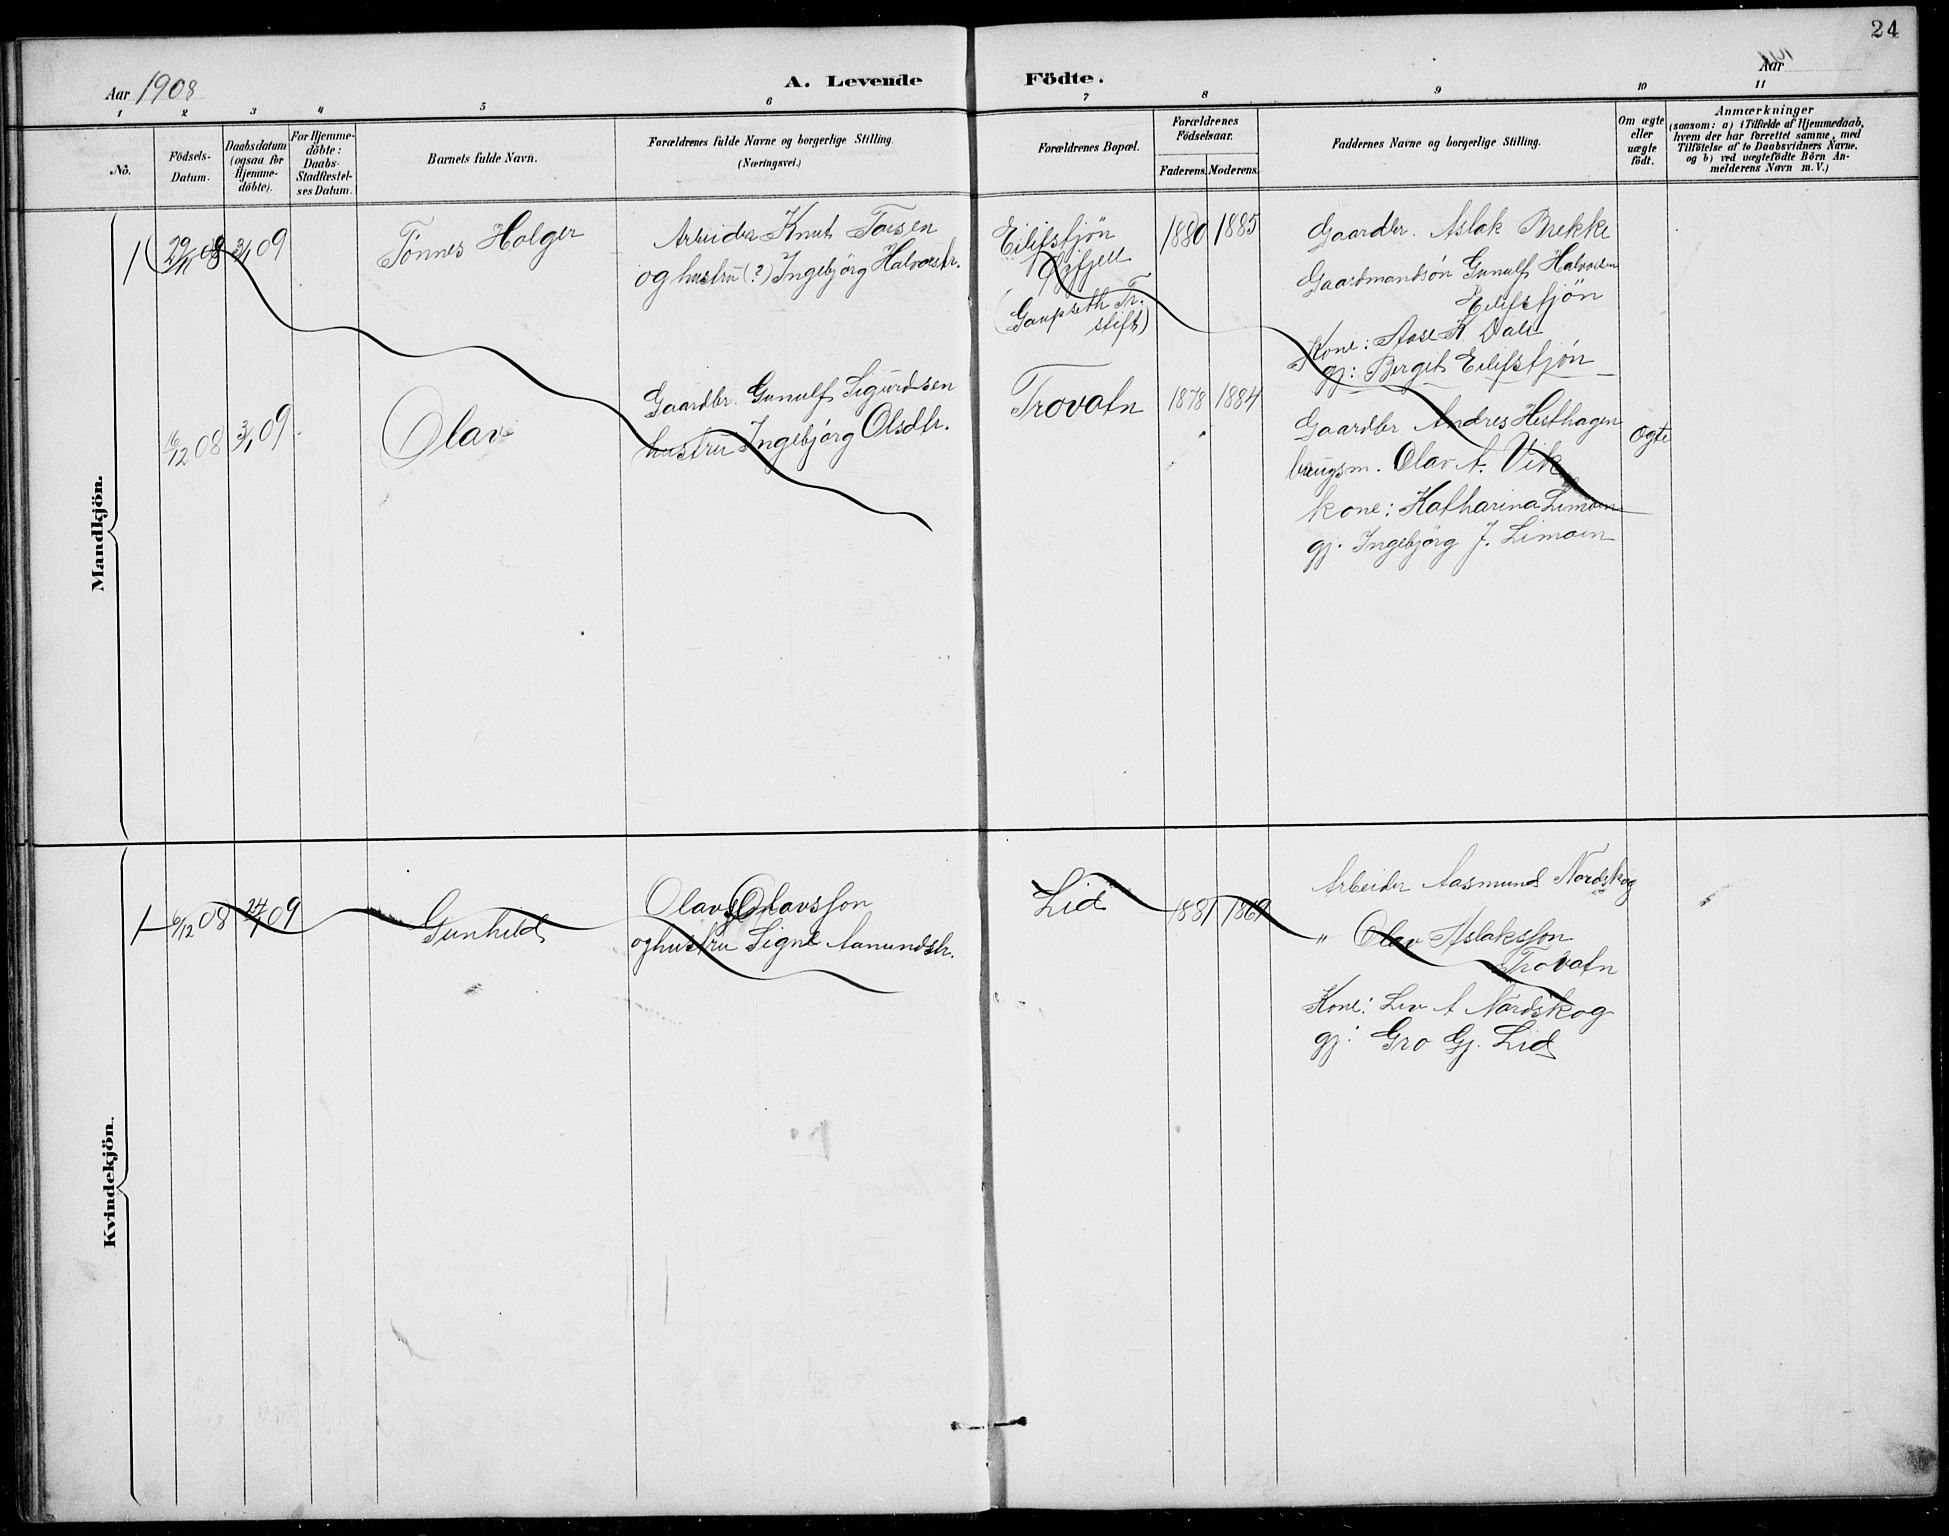 24
Aar 1908
A. Levende Födte.
Aar
1 2 3 4 5 6 7 8 9 10 11
No.
Födsels-
Datum.
Daabsdatum
(ogsaa for
Hjemme-
döbte).
For Hjemme-
döbte:
Daabs-
Stadfæstel-
ses Datum.
Barnets fulde Navn.
Forældrenes fulde Navne og borgerlige Stilling.
(Næringsvei.)
Forældrenes Bopæl.
Forældrenes
Födselsaar.
Faderens. Moderens.
Faddernes Navne og borgerlige Stilling.
Om ægte
eller
uægte
födt.
Anmærkninger
(saasom: a) i Tilfælde af Hjemmedaab,
hvem der har forrettet samme, med
Tilföielse af to Daabsvidners Navne.
og b) ved uægtefödte Börn An-
melderens Navn m. V.)
Mandkjön.
1 29/11 08 3/1 09
Tönnes Holger
Arbeider Knut Torsen
og hustru (?) Ingebjörg Halvorsdtr.
Eilifstjön
(Gaupseth Tr.
stift)
1880 1885
Gaardbr. Aslak Brekke
Gaardmandsön Gunulf Halvorsen
Eilifstjön
Kone: Aase K Dale
gj: Bergit Eilifstjön
6/12 08 3/1 09
Olav
Gaardbr. Gunulf Sigurdsen
hustru Ingebjörg Olsdtr.
Trovatn
1878 1884
Gaardbr Andres Hesthagen
brugsm. Olav A. Vik
kone: Katharina Limoen
gj. Ingebjörg J. Limoen
Ogte
Kvindekjön.
1 6/12 08 24/1 09
Gunhild
Olav Olavsson
og hustru Signe Aamundsdtr.
Lid
1881 1869
Arbeider Aasmund Nordskog
" Olav Aslaksson
Trovatn
Kone: Liv A Nordskog
gj: Gro Gj. Lid